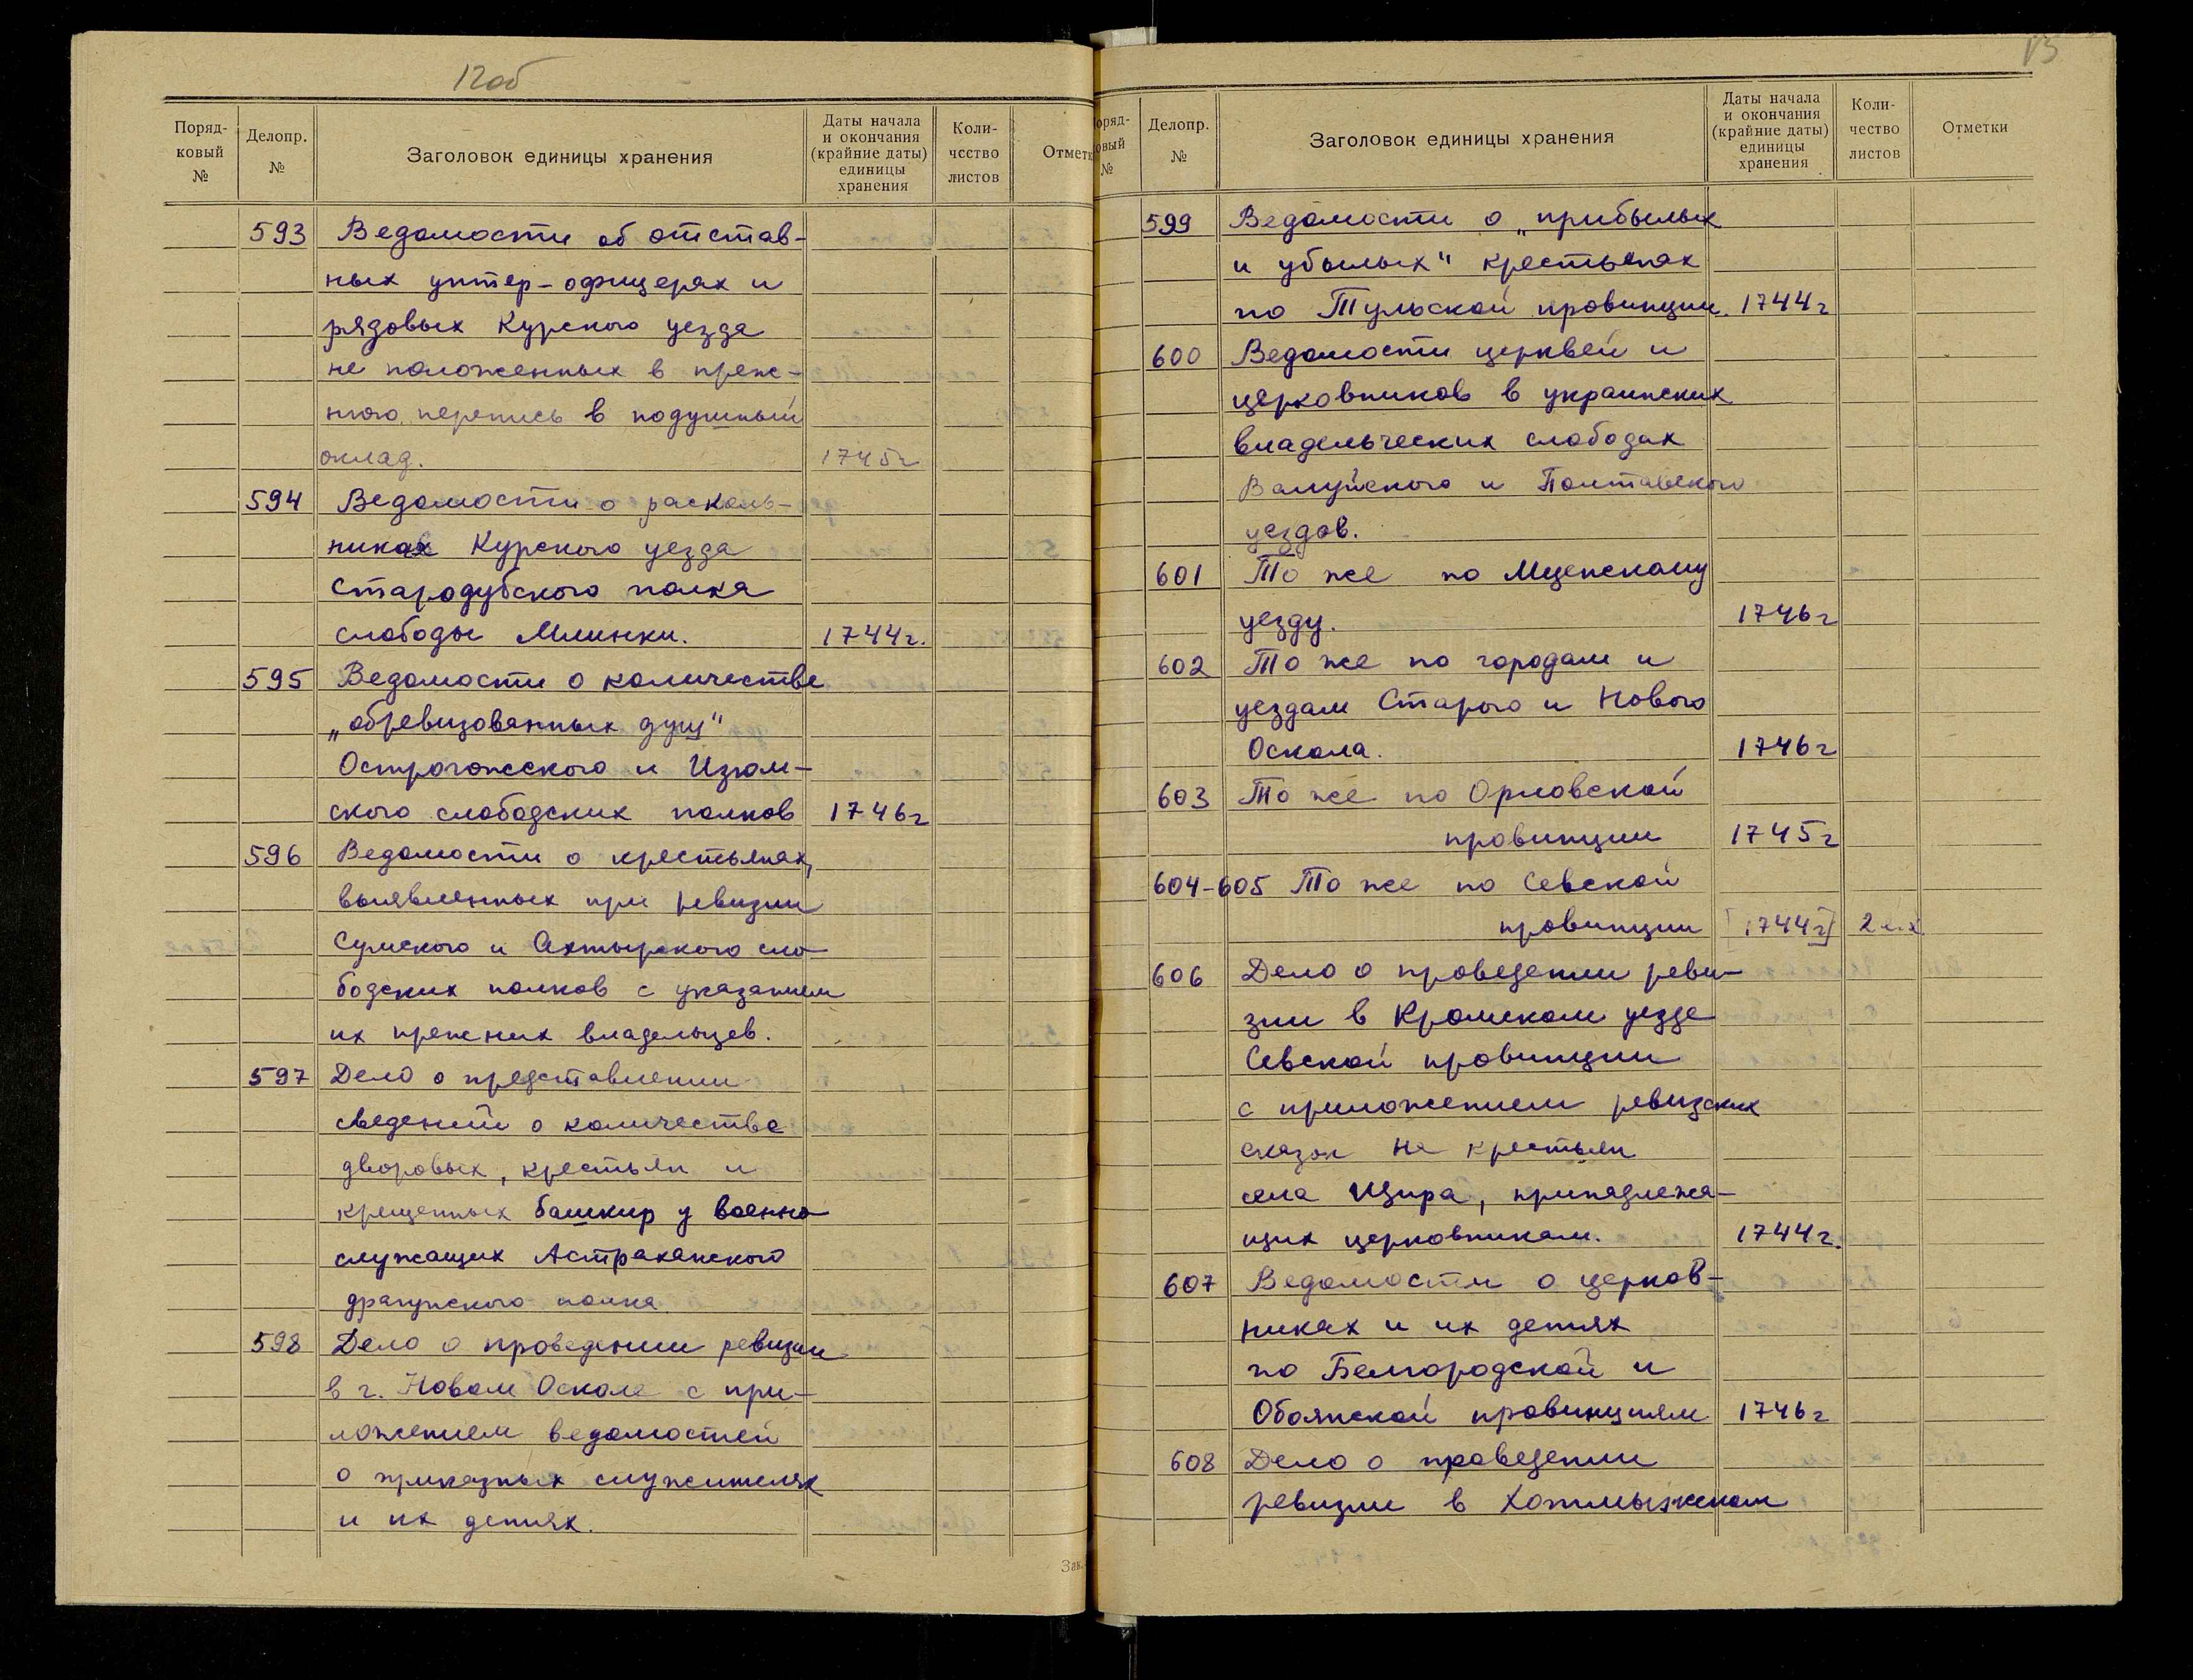 12об
Поряд-
ковый
№
Делопр.
№
Заголовок единицы хранения
Даты начала
и окончания
(крайние даты)
единицы
хранения
Коли-
чество
листов
Отметк
593 Ведомости об отстав-
ных унтер-офицерах и
рядовых Курского уезда
не положенных в преж-
нюю перепись в подушный
оклад. 1745г
594 Ведомости о расколь-
никах Курского уезда
Стародубского полка
слободы Млинки. 1744г.
595 Ведомости о количестве
„обревизованных душ"
Острогожского и Изюм-
ского слободских полков 1746г
596 Ведомости о крестьянах,
выявленных при ревизии
Сумского и Ахтырского сло-
бодских полков с указанием
их прежних владельцев.
597 Дело о представлении
сведений о количестве
дворовых, крестьян и
крещенных башкир у военно
служащих Астраханского
драгунского полка
598 Дело о проведении ревизии
в г. Новом Осколе с при-
ложением ведомостей
о приказных служителях
и их детях.
Зак.
13
оряд-
овый
№
Делопр.
№
Заголовок единицы хранения
Даты начала
и окончания
(крайние даты)
единицы
хранения
Коли-
чество
листов
Отметки
599 Ведомости о „прибылых
и убылых" крестьянах
по Тульской провинции. 1744г
600 Ведомости церквей и
церковников в украинских
владельческих слободах
Валуйского и Полтавского
уездов.
601 То же по Мценскому
уезду. 1746г
602 То же по городам и
уездам Старого и Нового
Оскола. 1746г
603 То же по Орловской
провинции 1745г
604-605 То же по Севской
провинции [1744г]
606 Дело о проведении реви-
зии в Кромском уезде
Севской провинции
с приложением ревизских
сказок на крестьян
села Щира, принадлежа-
щих церковникам. 1744г.
607 Ведомости о церков-
никах и их детях
по Белгородской и
Обоянской провинциям 1746г
608 Дело о проведении
ревизии в Хотмыжском